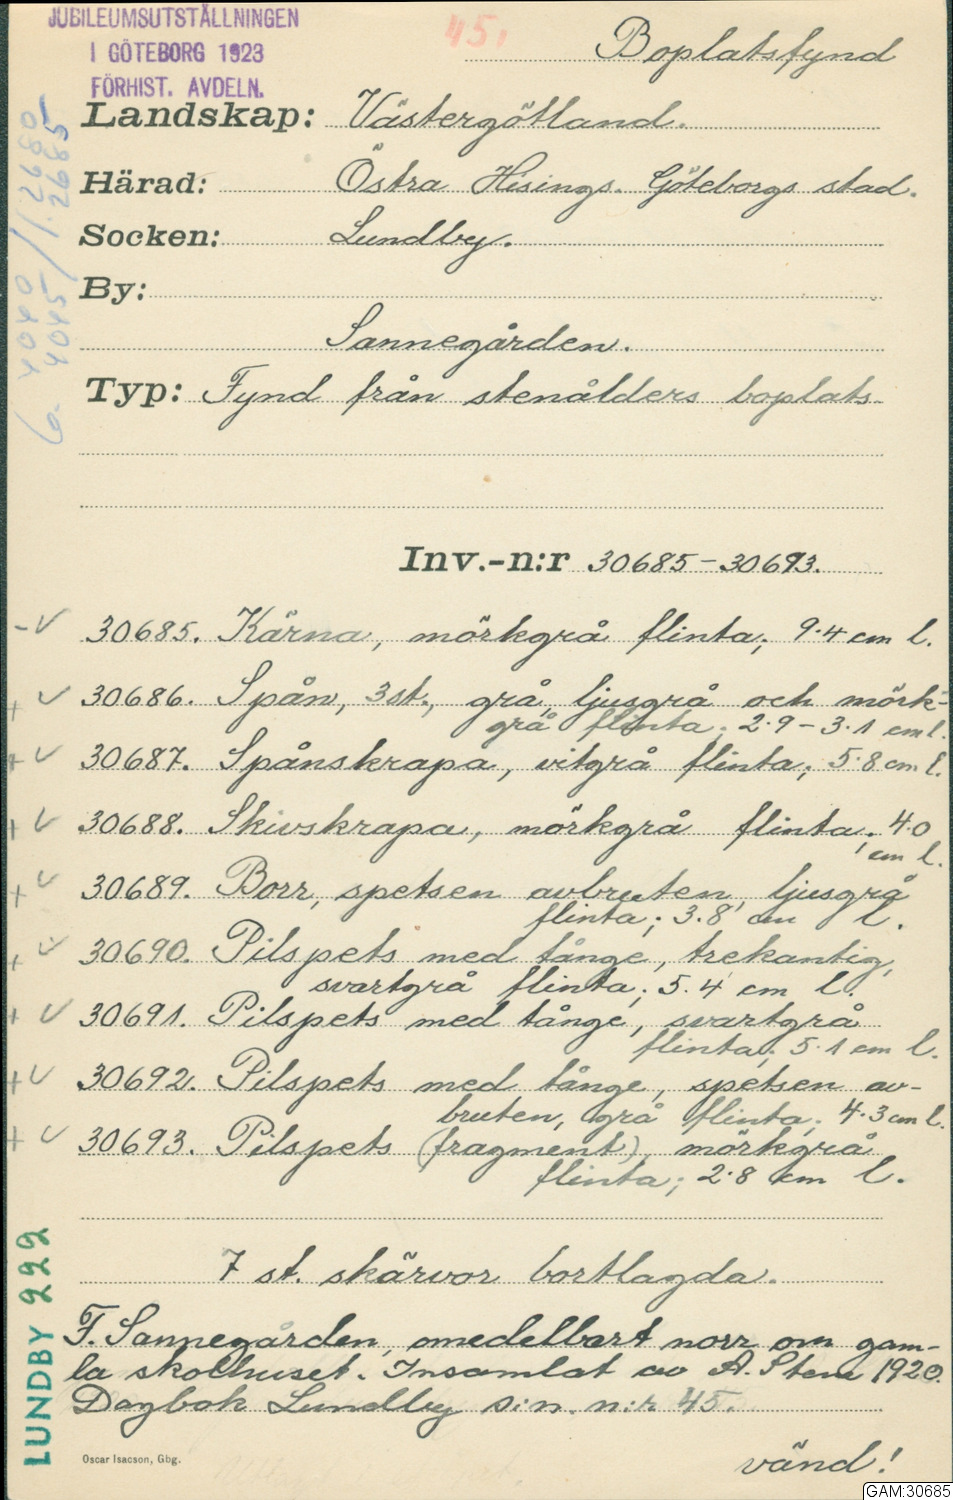 JUBILEUMSUTSTÄLLNINGEN
I GÖTEBORG 1923
FÖRHIST. AVDELN.
45.
Boplatsfynd
Landskap: Västergötland.
Härad: Östra Hisings. Göteborgs stad.
Socken: Lundby.
By:
Sannegården.
Typ: Fynd från stenålders boplats.
Inv.-n:r 30685–30693.
-v 30685. Kärna, mörkgrå flinta; 9.4 cm l.
+ v 30686. Spån, 3 st., grå, ljusgrå och mörk-
grå flinta; 2.9–3.1 cm l.
+ v 30687. Spånskrapa, vitgrå flinta; 5.8 cm l.
+ v 30688. Skivskrapa, mörkgrå flinta; 4.0
cm l.
+ v 30689. Borr, spetsen avbruten, ljusgrå
flinta; 3.8 cm l.
+ v 30690. Pilspets med tånge, trekantig,
svartgrå flinta; 5.4 cm l.
+ v 30691. Pilspets med tånge, svartgrå
flinta; 5.1 cm l.
+ v 30692. Pilspets med tånge, spetsen av-
bruten, grå flinta; 4.3 cm l.
+ v 30693. Pilspets (fragment), mörkgrå
flinta; 2.8 cm l.
7 st. skärvor bortlagda.
F. Sannegården, omedelbart norr om gam-
la skolhuset. Insamlat av A. Stene 1920.
Dagbok Lundby s:n. n:r 45.
vänd!
Oscar Isacson, Gbg.
LUNDBY 222
6- 4040/1:2680
4045/1:2685
GAM:30685